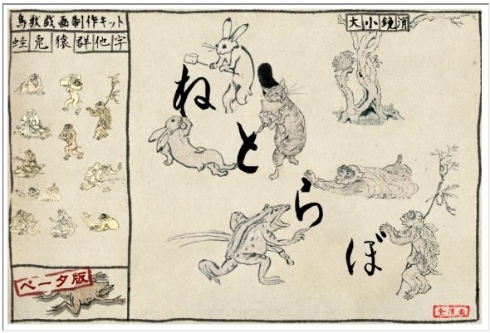 鳥獣戯画制作キット
蛙兎猿群他字
大小鏡消
ねとらぼ
ベータ版